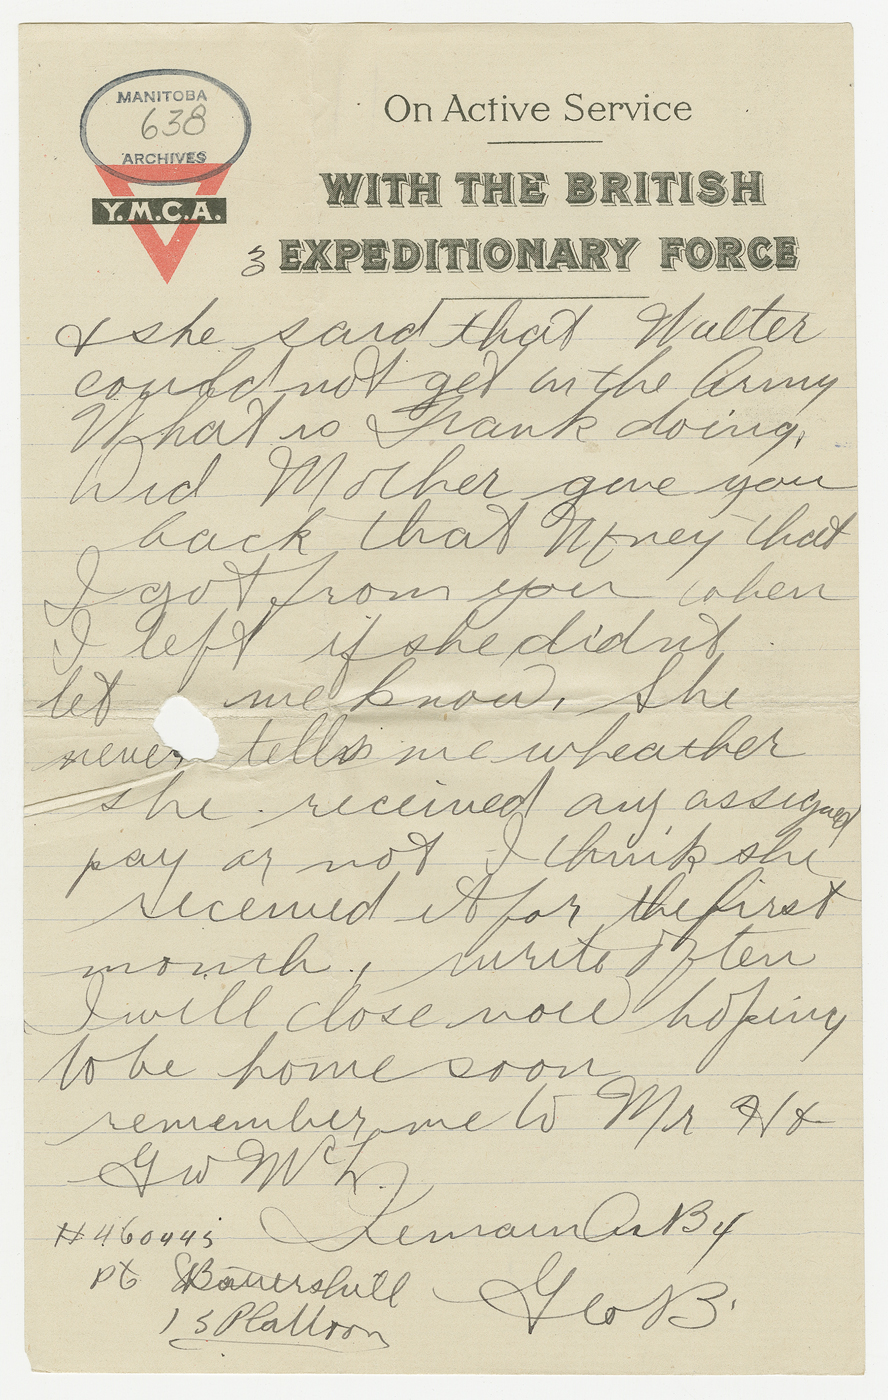 MANITOBA
638
ARCHIVES
Y.M.C.A.
On Active Service
WITH THE BRITISH
3 EXPEDITIONARY FORCE
& she said that Walter
could not get in the Army
What is Frank doing.
Did Mother gave you
back that Money that
I got from you when
I left if she didnt
let me know. She
never tells me wheather
she received any assigned
pay or not I think she
received it for the first
month. write often
I will close now hoping
to be home soon
remember me to Mr H &
G W McL.
Remain As B4
Geo B.
# 460445
Pt Battershill
15 Platoon